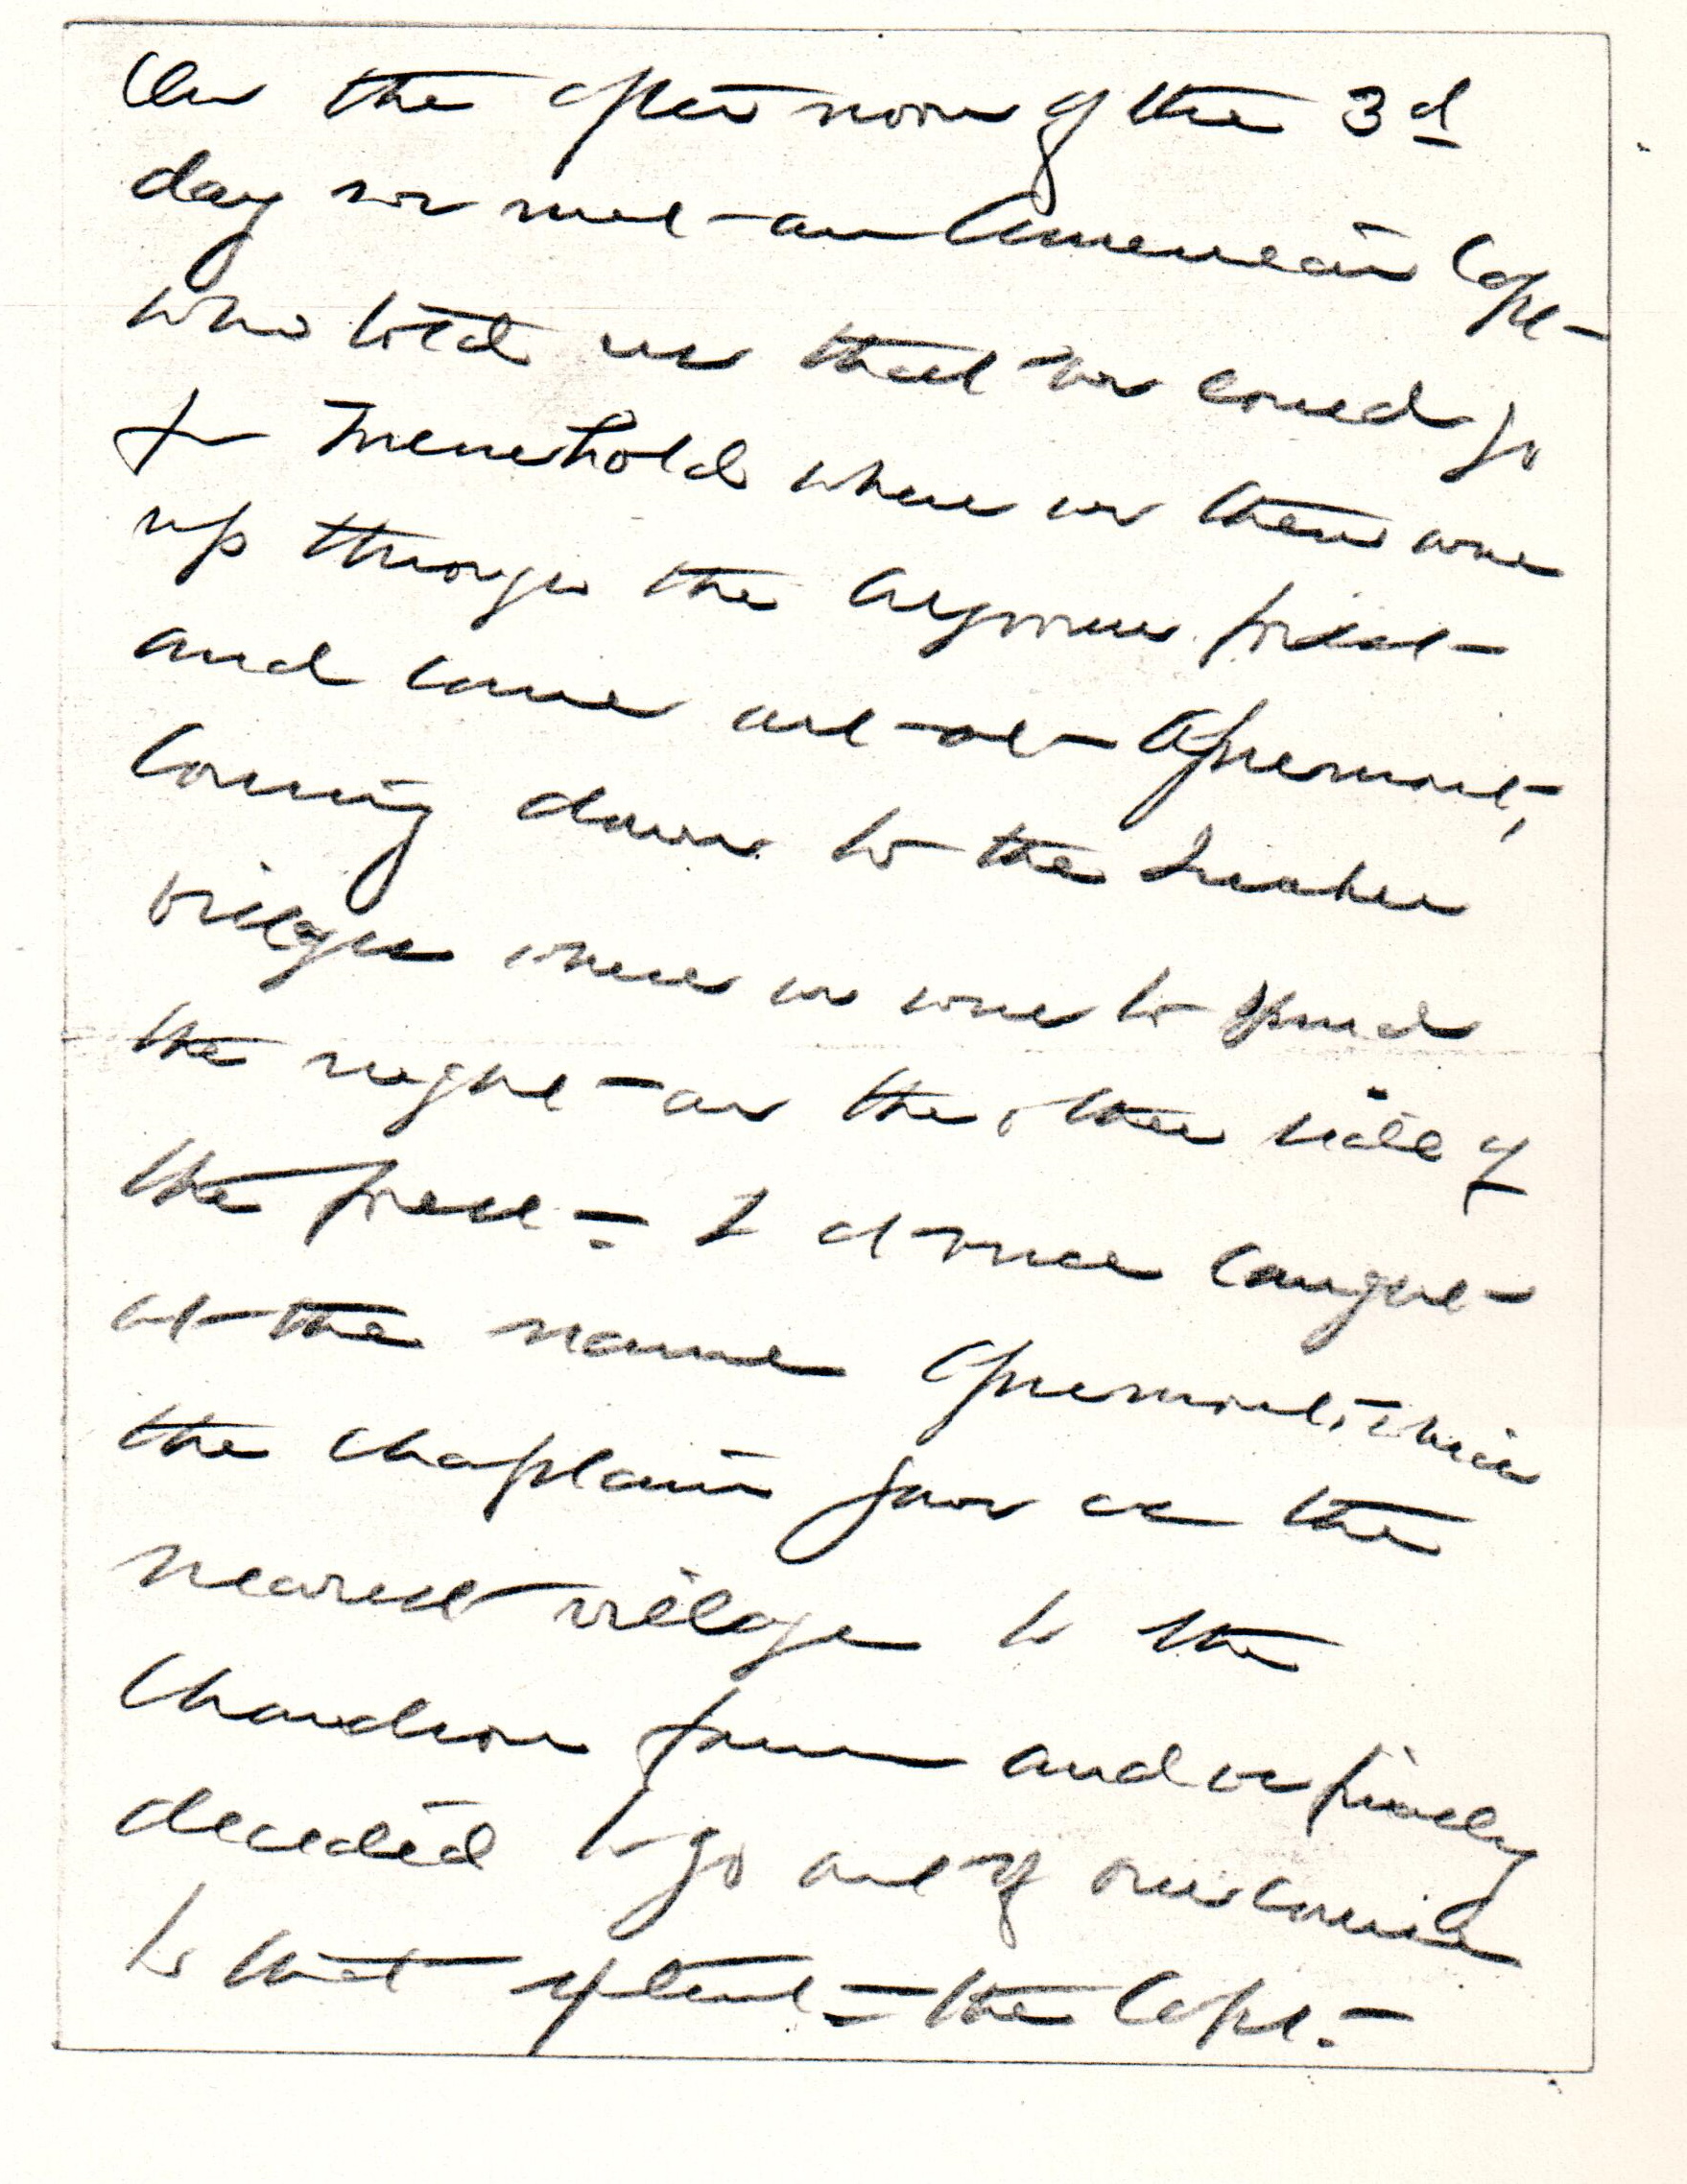 On the afternoon of the 3d
day we met an American Capt
who told us that we could go
to Menehold where we then were
up through the Argonne forest
and come out at Apremont,
coming down to the
village where we were to spend
the night on the other side of
the forest. I at once caught
at the name Apremont, which
the chaplain gave as the
nearest village to the
Chaudron farm and we finally
decided to go out of our course
to that extent. The Capt.